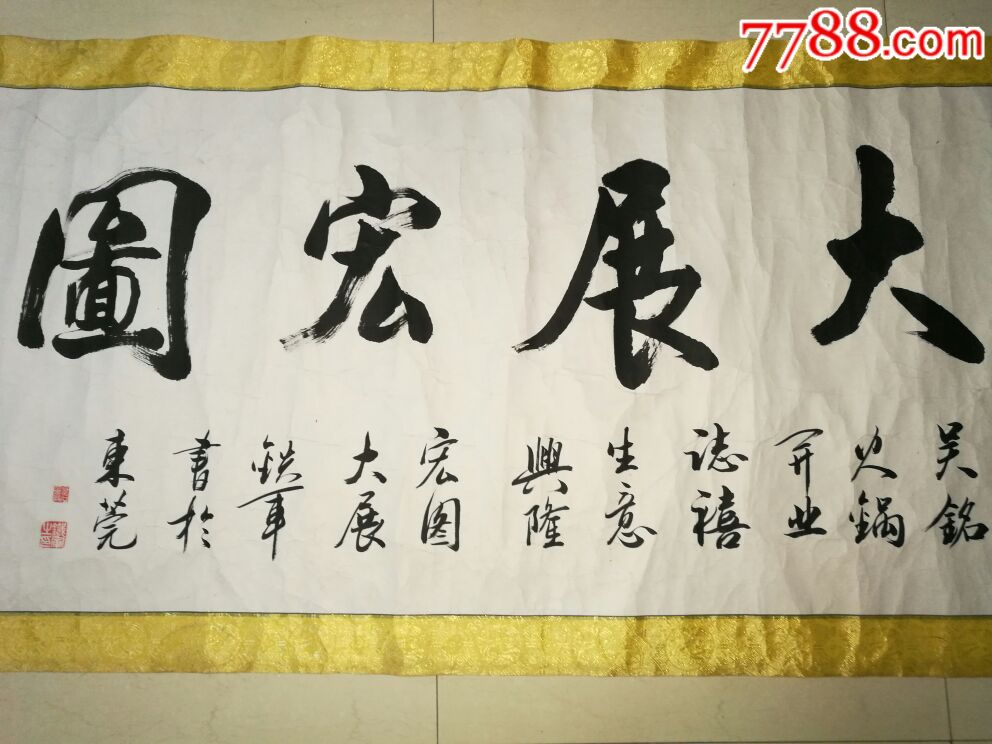 7788.com
大展宏圖
吴銘
火鍋
開业
誌禧
生意
興隆
宏图
大展
鉄軍
書於
東莞